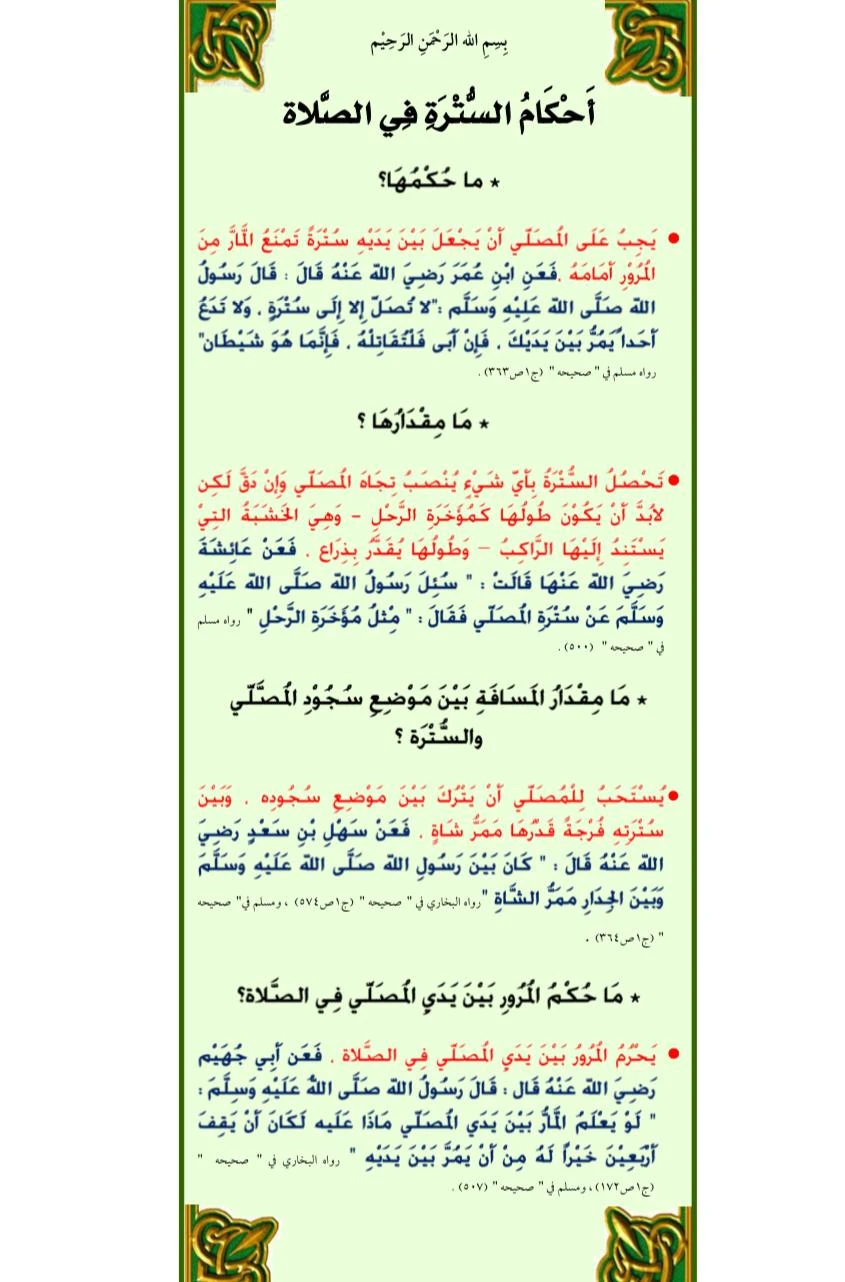 بِسِمِ الله الرَحْمَنِ الرَحِيْم
أَحْكَامُ السُّتْرَةِ فِي الصَّلاة
* ما حُكْمُهَا؟
● يَجِبُ عَلَى المُصَلّي أَنْ يَجْعَلَ بَيْنَ يَدَيْهِ سُتْرَةً تَمْنَعُ المَّارَّ مِنَ
المُرُوْرِ أَمَامَهُ .فَعَنِ ابْنِ عُمَرَ رَضِيَ اللّه عَنْهُ قَالَ : قَالَ رَسُولُ
اللّه صَلَّى اللّه عَلِيْهِ وَسَلَّم :"لا تُصَلّ إِلا إِلَى سُتْرَةٍ ، وَلا تَدَعُ
أَحَداً يَمُرُّ بَيْنَ يَدَيْكَ ، فَإِنْ أَبَى فَلْتُقَاتِلْهُ ، فَإِنَّمَا هُوَ شَيْطَان"
رواه مسلم في " صحيحه " (ج١ص٣٦٣) .
* مَا مِقْدَارُهَا ؟
● تَحْصُلُ السُّتْرَةُ بِأَيّ شَيْءٍ يُنْصَبُ تِجَاهَ المُصَلّي وَإِنْ دَقَّ لَكِن
لاَبُدَّ أَنْ يَكُوْنَ طُولُهَا كَمُؤَخَرَةِ الرَّحْلِ – وَهِيَ الخَشَبَةُ التِيْ
يَسْتَنِدُ إِلَيْهَا الرَّاكِبُ – وَطُولُهَا يُقَدَّرُ بِذِرَاع . فَعَنْ عَائِشَةَ
رَضِيَ اللّه عَنْهَا قَالَتْ : " سُئِلَ رَسُولُ اللّه صَلَّى اللّه عَلَيْهِ
وَسَلَّمَ عَنْ سُتْرَةِ المُصَلّي فَقَالَ : " مِثْلُ مُؤَخَرَةِ الرَّحْلِ " رواه مسلم
في " صحيحه " (٥٠٠) .
* مَا مِقْدَارُ المَسَافَةِ بَيْنَ مَوْضِعِ سُجُوْدِ المُصَّلّي
والسُّتْرَة ؟
● يُسْتَحَبُ لِلْمُصَلّي أَنْ يَتْرُكَ بَيْنَ مَوْضِعِ سُجُودِه ، وَبَيْنَ
سُتْرَتِهِ فُرْجَةً قَدْرُهَا مَمَرُّ شَاةٍ . فَعَنْ سَهْلِ بْنِ سَعْدٍ رَضِيَ
اللّه عَنْهُ قَالَ : " كَانَ بَيْنَ رَسُولِ اللّه صَلَّى اللّه عَلَيْهِ وَسَلَّمَ
وَبَيْنَ الجِدَارِ مَمَرُّ الشَّاةِ "رواه البخاري في " صحيحه " (ج١ص٥٧٤) ، ومسلم في" صحيحه
" (ج١ص٣٦٤) .
* مَا حُكْمُ المُرُورِ بَيْنَ يَدَيِ المُصَلّي فِي الصَّلاة؟
● يَحْرُمُ المُرُورُ بَيْنَ يَدَيِ المُصَلّي فِي الصَّلاة . فَعَن أَبِي جُهَيْم
رَضِيَ اللّه عَنْهُ قَال : قَالَ رَسُولُ اللّه صَلَّى اللّهُ عَلَيْهِ وَسَلَّمَ :
" لَوْ يَعْلَمُ المَّارُّ بَيْنَ يَدَي المُصَلّي مَاذَا عَلَيه لَكَانَ أَنْ يَقِفَ
أَرْبَعِيْنَ خَيْراً لَهُ مِنْ أَنْ يَمُرَّ بَيْنَ يَدَيْهِ " رواه البخاري في " صحيحه "
(ج١ص١٧٢) ، ومسلم في " صحيحه " (٥٠٧) .